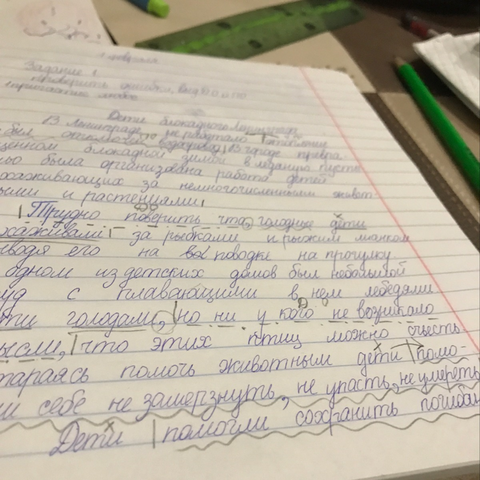 Задание 1
Дети блокадного Ленинграда
В Ленинграде не работало отопление
был водопровод, В городе превра-
щенном блокадной зимой в ледяную пусты-
была организована работа детей
ухаживающих за немногочисленными живот-
ными и растениями
Трудно поверить что голодные дети
ухаживали за рыбками и рыжим
водя его на поводке на прогулку
одном из детских домов был небольшой
уд с плавающими в нем лебедями
ети голодали, но ни у кого не возникало
мысли, что этих птиц можно съесть.
тараясь помочь животным дети помо-
ли себе не замерзнуть, не упасть, не умереть
Дети помогли сохранить